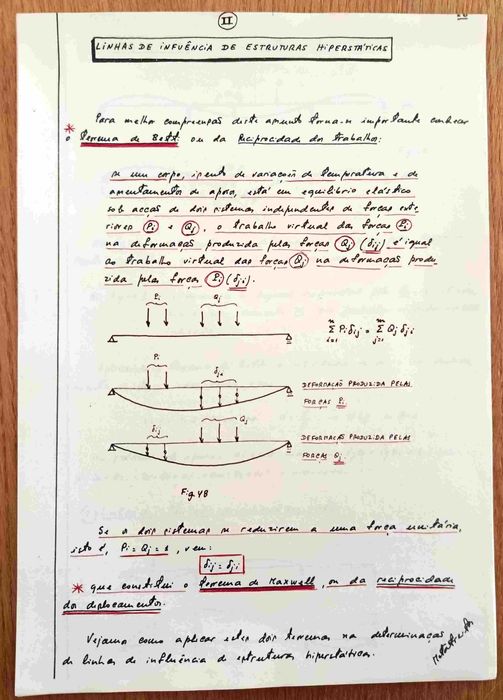 II
LINHAS DE INFUÊNCIA DE ESTRUTURAS HIPERSTÁTICAS
Para melhor compreensão deste assunto torna-se importante conhecer
* o Teorema de Betti ou da Reciprocidade dos trabalhos:
se um corpo, isento de variações de temperatura e de
assentamentos de apoio, está em equilíbrio elástico
sob acções de dois sistemas independentes de forças exte
riores Pi e Qj, o trabalho virtual das forças Pi
na deformação produzida pelas forças Qj (δij) é igual
ao trabalho virtual das forças Qj na deformação produ
zida pelas forças Pi (δji).
Pi Qj
n∑i=1 Pi δij = m∑j=1 Qj δji
Pi δji
DEFORMAÇÃO PRODUZIDA PELAS
FORÇAS Pi
δij Qj
DEFORMAÇÃO PRODUZIDA PELAS
FORÇAS Qj
Fig. 48
Se os dois sistemas se reduzirem a uma força unitária,
isto é, Pi = Qj = 1, vem:
δij = δji
* que constitui o teorema de Maxwell, ou da reciprocidade
dos deslocamentos.
Vejamos como aplicar estes dois teoremas na determinação
de linhas de influência de estruturas hiperstáticas.